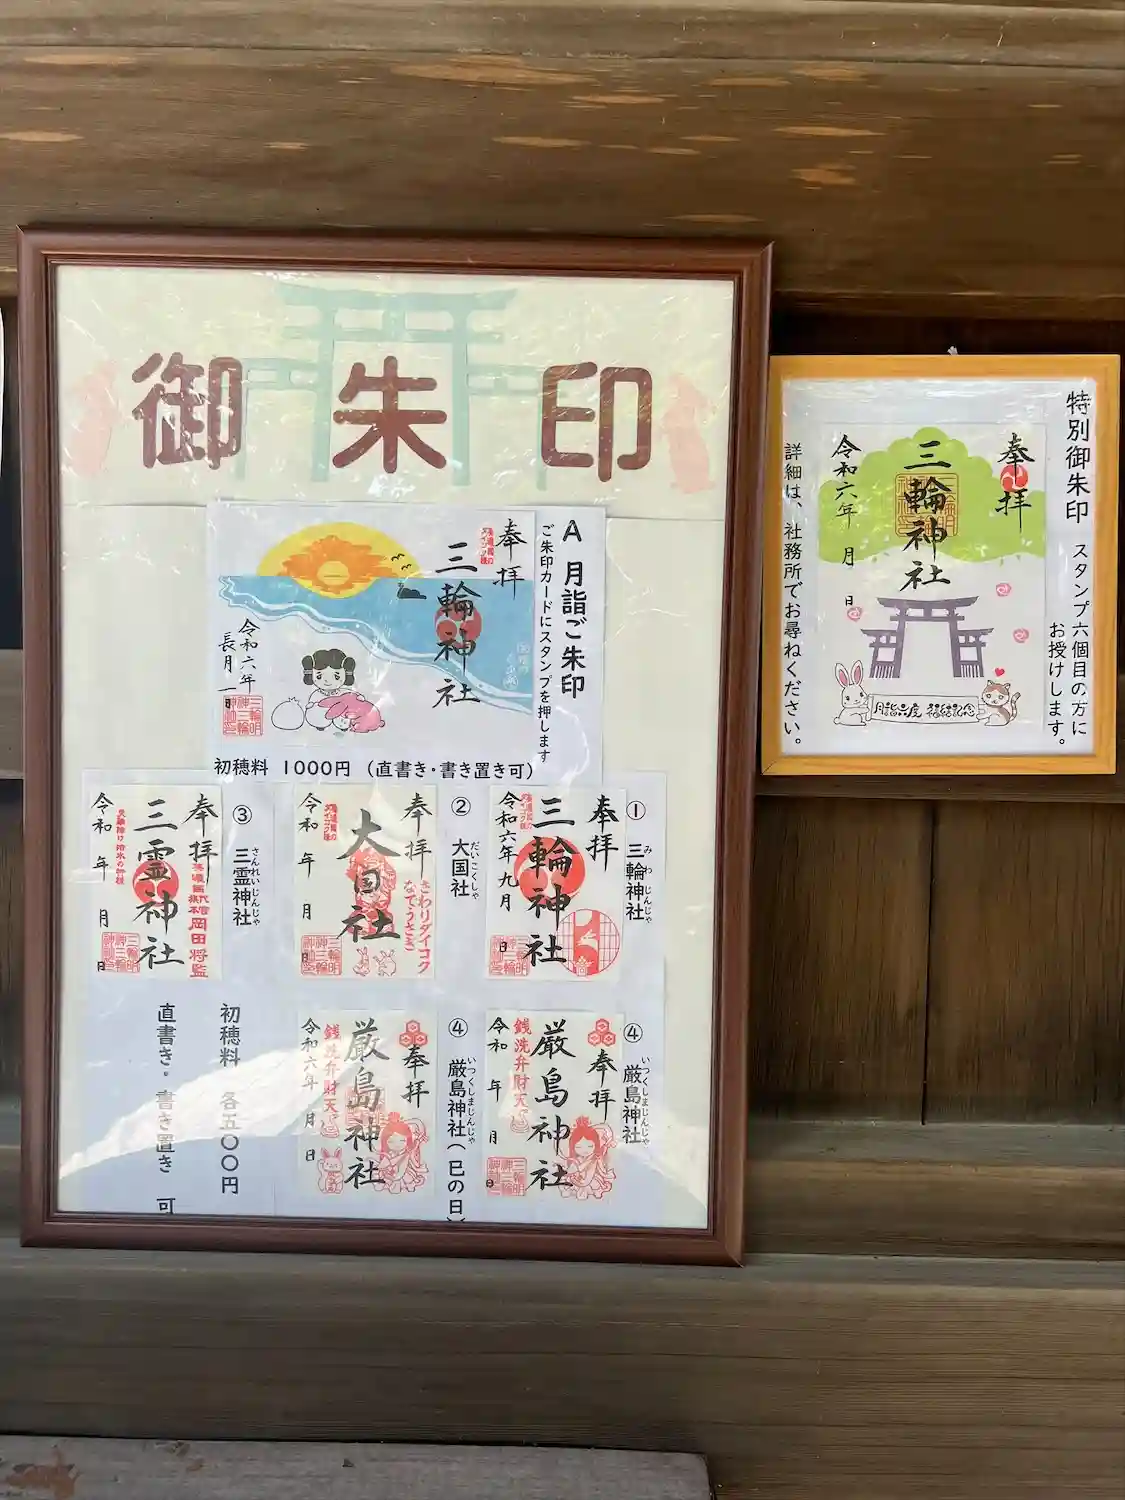 御朱印
A 月詣ご朱印
ご朱印カードにスタンプを押します
奉拝
三輪神社
令和六年
長月一日
初穂料 1000円 (直書き・書き置き可)
① 三輪神社
みわじんじゃ
奉拝
三輪神社
令和六年九月 日
② 大国社
だいこくしゃ
奉拝
大国社
さわりダイコク
なでうさぎ
令和 年 月 日
③ 三霊神社
さんれいじんじゃ
奉拝
岡田将監
三霊神社
令和 年 月 日
④ 厳島神社
いつくしまじんじゃ
奉拝
厳島神社
銭洗弁財天
令和 年 月 日
④ 厳島神社(巳の日)
いつくしまじんじゃ
奉拝
厳島神社
銭洗弁財天
令和六年 月 日
初穂料 各五〇〇円
直書き・書き置き 可
特別御朱印 スタンプ六個目の方に
お授けします。
奉拝
三輪神社
令和六年 月 日
月詣六度 福結記念
詳細は、社務所でお尋ねください。